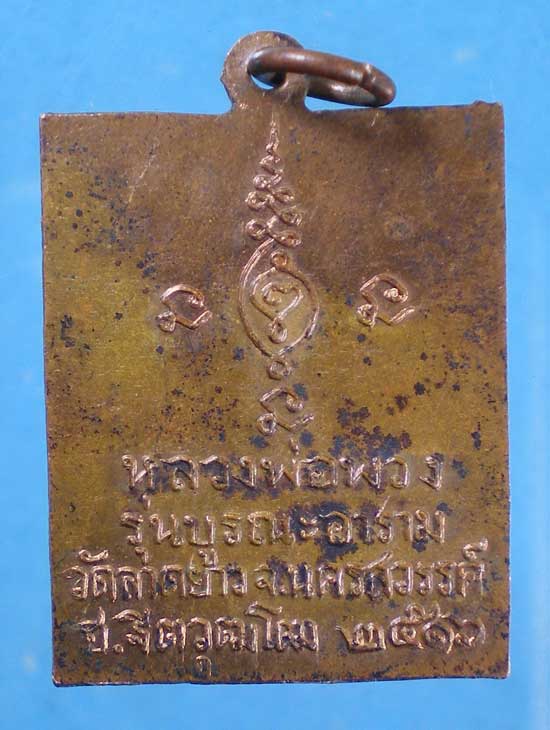 หลวงพ่อพวง
รุ่นบูรณะอาราม
วัดลาดยาว จ.นครสวรรค์
ฐ.ฐิตวุฒโฒ ๒๕๑๖